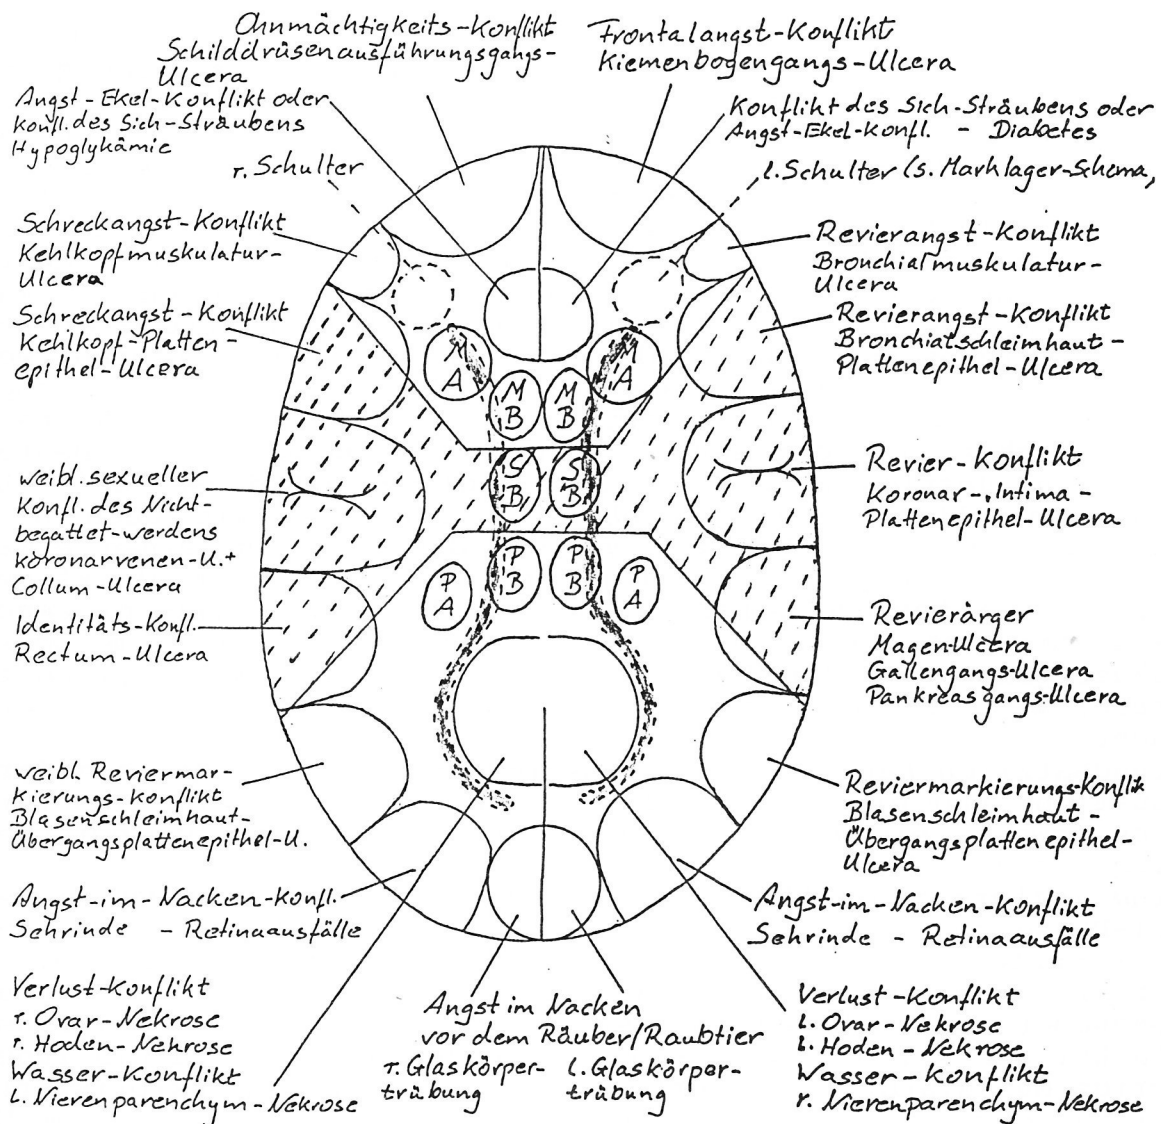 Ohnmächtigkeits-Konflikt
Schilddrüsenausführungsgangs-
Ulcera
Frontalangst-Konflikt
Kiemenbogengangs-Ulcera
Angst-Ekel-Konflikt oder
Konfl. des Sich-Sträubens
Hypoglykämie
Konflikt des Sich-Sträubens oder
Angst-Ekel-Konfl. - Diabetes
r. Schulter
l. Schulter (s. Marklager-Schema,
Schreckangst-Konflikt
Kehlkopfmuskulatur-
Ulcera
Revierangst-Konflikt
Bronchialmuskulatur-
Ulcera
Schreckangst-Konflikt
Kehlkopf-Platten-
epithel-Ulcera
Revierangst-Konflikt
Bronchialschleimhaut-
Plattenepithel-Ulcera
M
A
M
B
M
B
M
A
S
B
S
B
weibl. sexueller
Konfl. des Nicht-
begattet-werdens
Koronarvenen-U.+
Collum-Ulcera
Revier-Konflikt
Koronar-Intima-
Plattenepithel-Ulcera
P
A
P
B
P
B
P
A
Identitäts-Konfl.
Rectum-Ulcera
Revierärger
Magen-Ulcera
Gallengangs-Ulcera
Pankreasgangs-Ulcera
weibl. Reviermar-
kierungs-Konflikt
Blasenschleimhaut-
Übergangsplattenepithel-U.
Reviermarkierungs-Konflik
Blasenschleimhaut-
Übergangsplattenepithel-
Ulcera
Angst-im-Nacken-Konfl.
Sehrinde - Retinaausfälle
Angst-im-Nacken-Konflikt
Sehrinde - Retinaausfälle
Verlust-Konflikt
r. Ovar-Nekrose
r. Hoden-Nekrose
Wasser-Konflikt
l. Nierenparenchym-Nekrose
Angst im Nacken
vor dem Räuber/Raubtier
r. Glaskörper-
trübung
l. Glaskörper-
trübung
Verlust-Konflikt
l. Ovar-Nekrose
l. Hoden-Nekrose
Wasser-Konflikt
r. Nierenparenchym-Nekrose